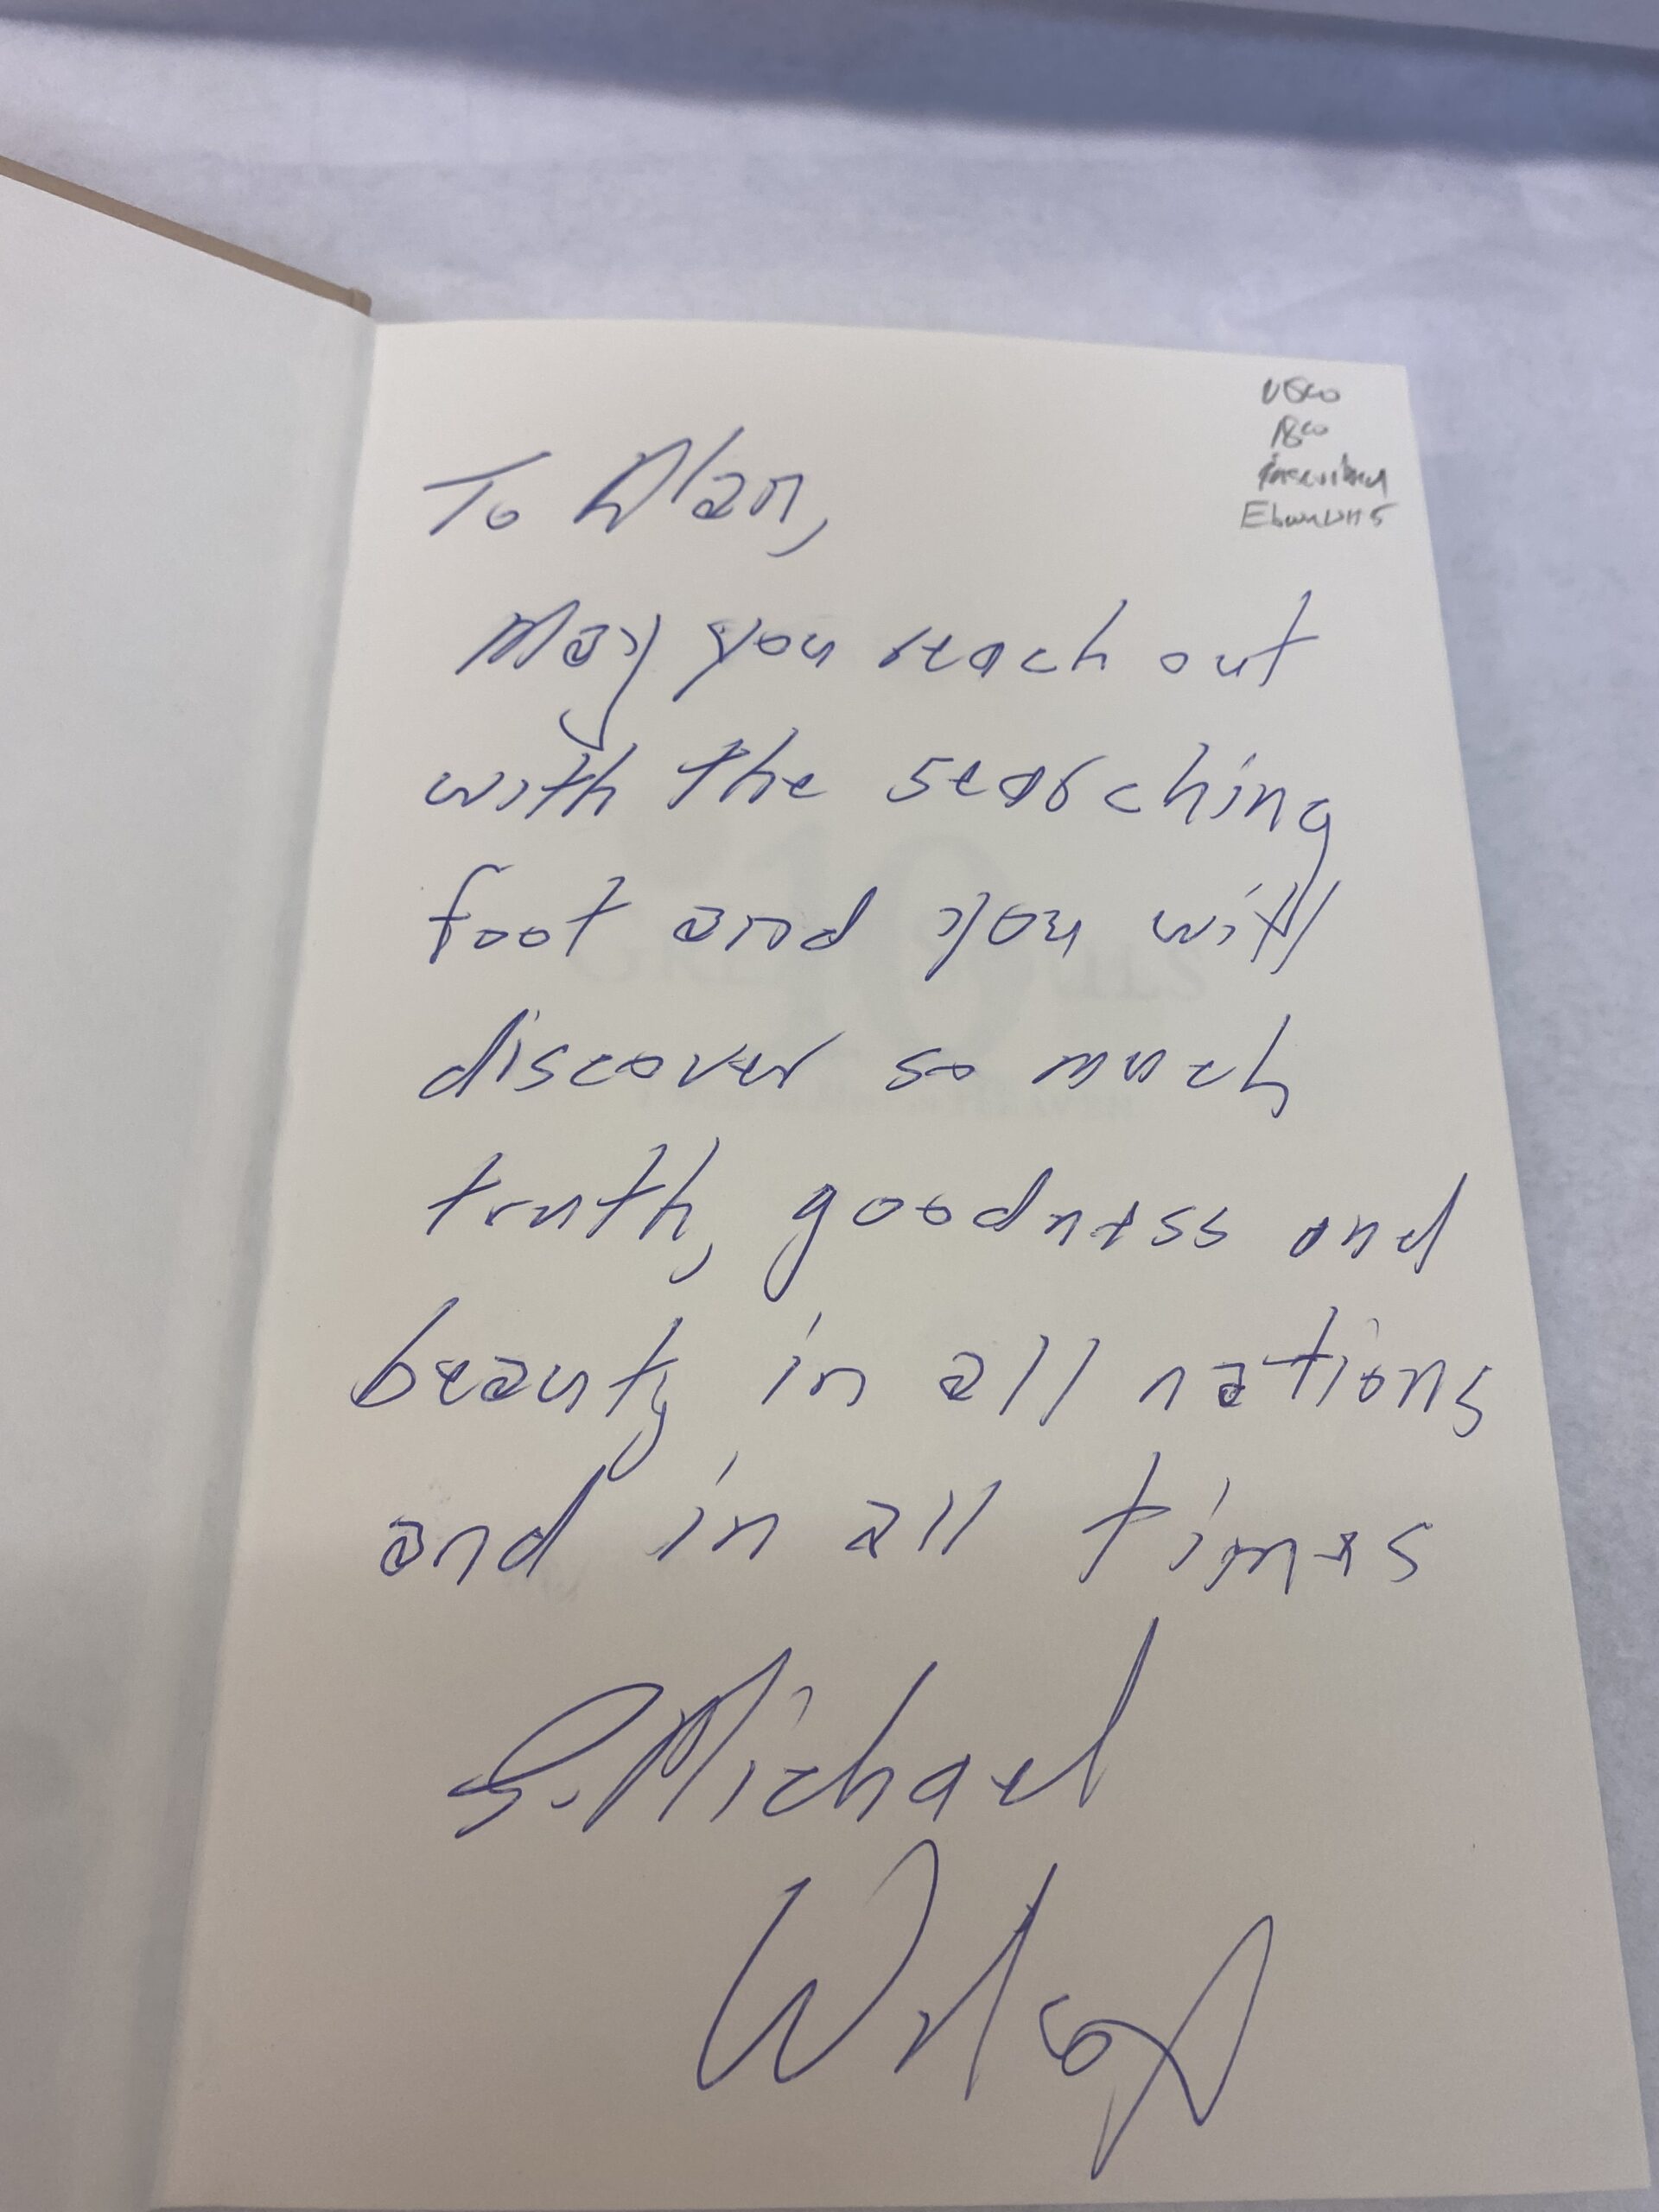 To Alan,
May you reach out
with the searching
foot and you will
discover so much
truth, goodness and
beauty in all nations
and in all times
S. Michael
Wilson
inscribed
10